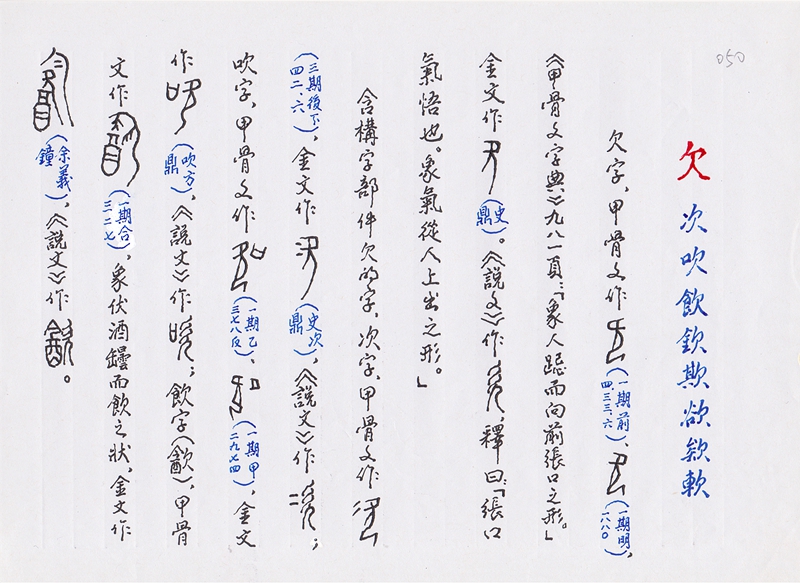 050
欠 次吹飲欽欺欲欵軟
欠字，甲骨文作（一期前四.三三.六）、（一期明一八八〇）
《甲骨文字典》九八一頁：「象人跽而向前張口之形。」
金文作（史欠鼎）。《說文》作，釋曰：「張口
氣悟也。象氣從人上出之形。」
含構字部件欠的字，次字，甲骨文作
（三期後下四二.六），金文作（史次鼎），《說文》作；
吹字，甲骨文作（一期乙三七八反）、（一期甲二九七四），金文
作（吹方鼎），《說文》作；飲字（㱃），甲骨
文作（一期合三二七），象伏酒罎而飲之狀，金文作
（余義鐘），《說文》作。